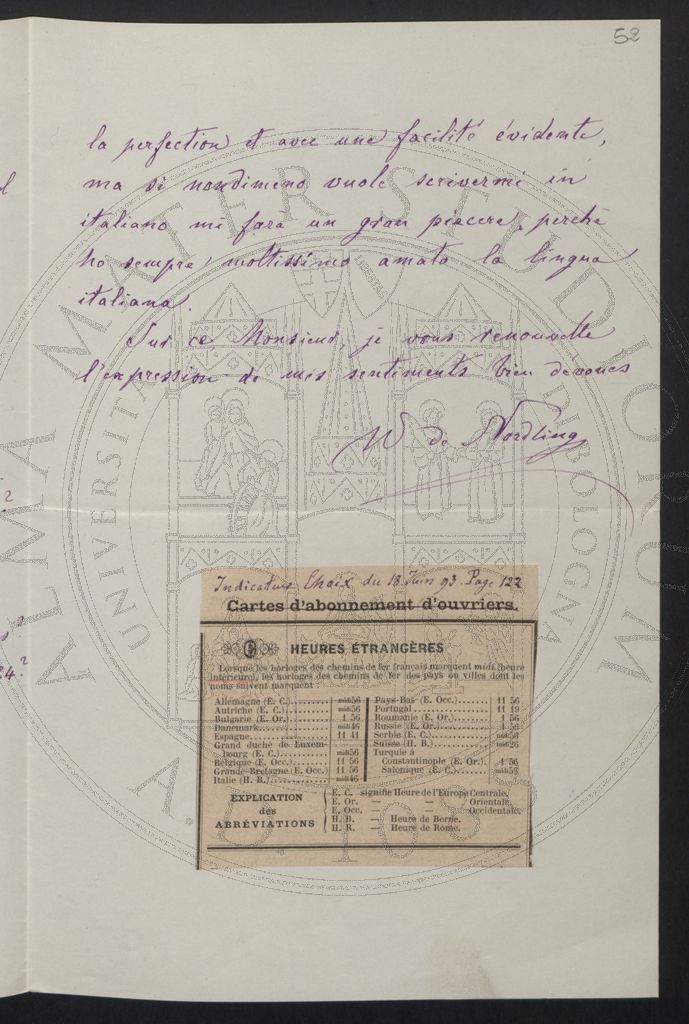 52
la perfection et avec une facilité évidente,
ma si nondimeno vuole scrivermi in
italiano mi fara un gran piacere, perchè
ho sempre moltissimo amato la lingua
italiana.
Sur ce Monsieur, je vous renouvelle
l'expression de mes sentiments bien dévoués
W de Nördling
Indicateur Chaix du 18 Juin 93. Page 122
Cartes d'abonnement d'ouvriers.
HEURES ÉTRANGÈRES
Lorsque les horloges des chemins de fer français marquent midi (heure
intérieure), les horloges des chemins de fer des pays ou villes dont les
noms suivent marquent :
Allemagne (E. C.) midi56
Autriche (E. C.) midi56
Bulgarie (E. Or.) 1 56
Danemark midi46
Espagne 11 41
Grand duché de Luxem-
bourg (E. C.) midi56
Belgique (E. Occ.) 11 56
Grande-Bretagne (E. Occ.) 11 56
Italie (H. R.) midi46
Pays-Bas (E. Occ.) 11 56
Portugal 11 19
Roumanie (E. Or.) 1 56
Russie (E. Or.) 1 56
Serbie (E. C.) midi56
Suisse (H. B.) midi26
Turquie à
Constantinople (E. Or.) 1 56
Salonique (E. C.) midi56
EXPLICATION
des
ABRÉVIATIONS
E. C. signifie Heure de l'Europe Centrale.
E. Or. — — Orientale.
E. Occ. — — Occidentale.
H. B. — Heure de Berne.
H. R. — Heure de Rome.
ALMA MATER STUDIORUM
UNIVERSITA
BOLOGNA
LIBERTAS
A.D. 1088